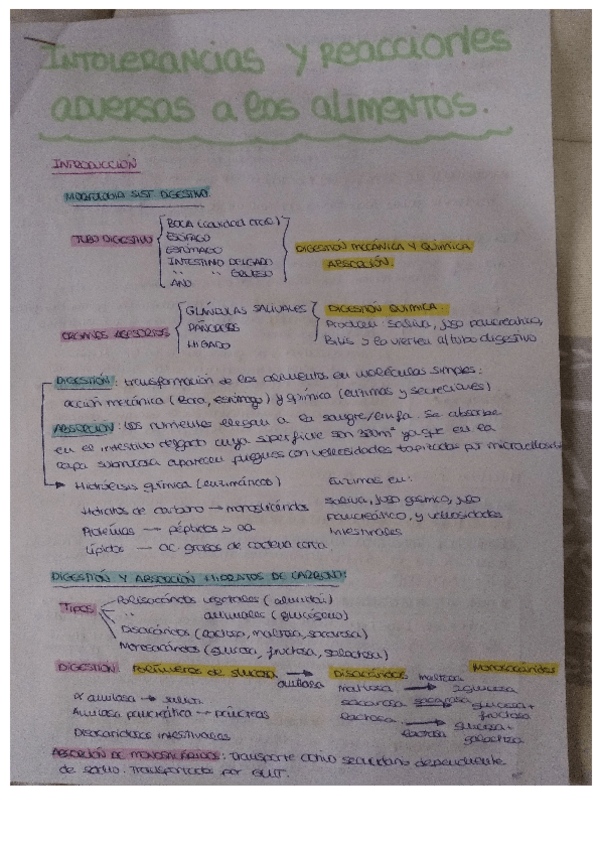 INTOLERANCIAS Y REACCIONES
ADVERSAS A LOS ALIMENTOS.
INTRODUCCIÓN
MORFOLOGIA SIST DIGESTIVO
TUBO DIGESTIVO
BOCA (cavidad oral)
ESÓFAGO
ESTÓMAGO
INTESTINO DELGADO
" " GRUESO
ANO
DIGESTIÓN MECÁNICA Y QUÍMICA
ABSORCIÓN.
ORGANOS ACCESORIOS
GLÁNDULAS SALIVALES
PÁNCREAS
HIGADO
DIGESTIÓN QUIMICA.
Producen saliva, jugo pancreático,
Bilis > lo vierten al tubo digestivo
DIGESTIÓN: transformación de los alimentos en moléculas simples:
acción mecánica (Boca, estómago) y química (enzimas y secreciones)
ABSORCIÓN: los nutrientes llegan a la sangre/linfa. Se absorbe
en el intestino delgado cuya superficie son 300m² ya que en la
capa submucosa aparecen pliegues con vellosidades tapizadas por
Hidrólisis química (enzimáticos)
Hidratos de carbono → monosacáridos
Proteínas → péptidos > aa
Lípidos — ac. grasos de cadena corta.
Enzimas en:
Saliva, jugo gástrico, jugo
pancreático, y vellosidades
intestinales
DIGESTIÓN Y ABSORCIÓN HIDRATOS DE CARBONO:
TIPOS
Polisacáridos vegetales (almidón)
" animales (glucógeno)
Disacáridos (lactosa, maltosa, sacarosa)
Monosacáridos (glucosa, fructosa, galactosa)
DIGESTIÓN: Polímeros de glucosa → Disacáridos Monosacáridos
amilasa
α amilasa → saliva
Amilasa pancreática → páncreas
Disacaridasas intestinales
maltosa → maltasa 2 glucosa
sacarosa sacarasa → glucosa +
fructosa
lactosa → lactasa glucosa +
galactosa
ABSORCIÓN DE MONOSACÁRIDOS: Transporte como secundario dependiente
de sodio. Transportados por GLUT.